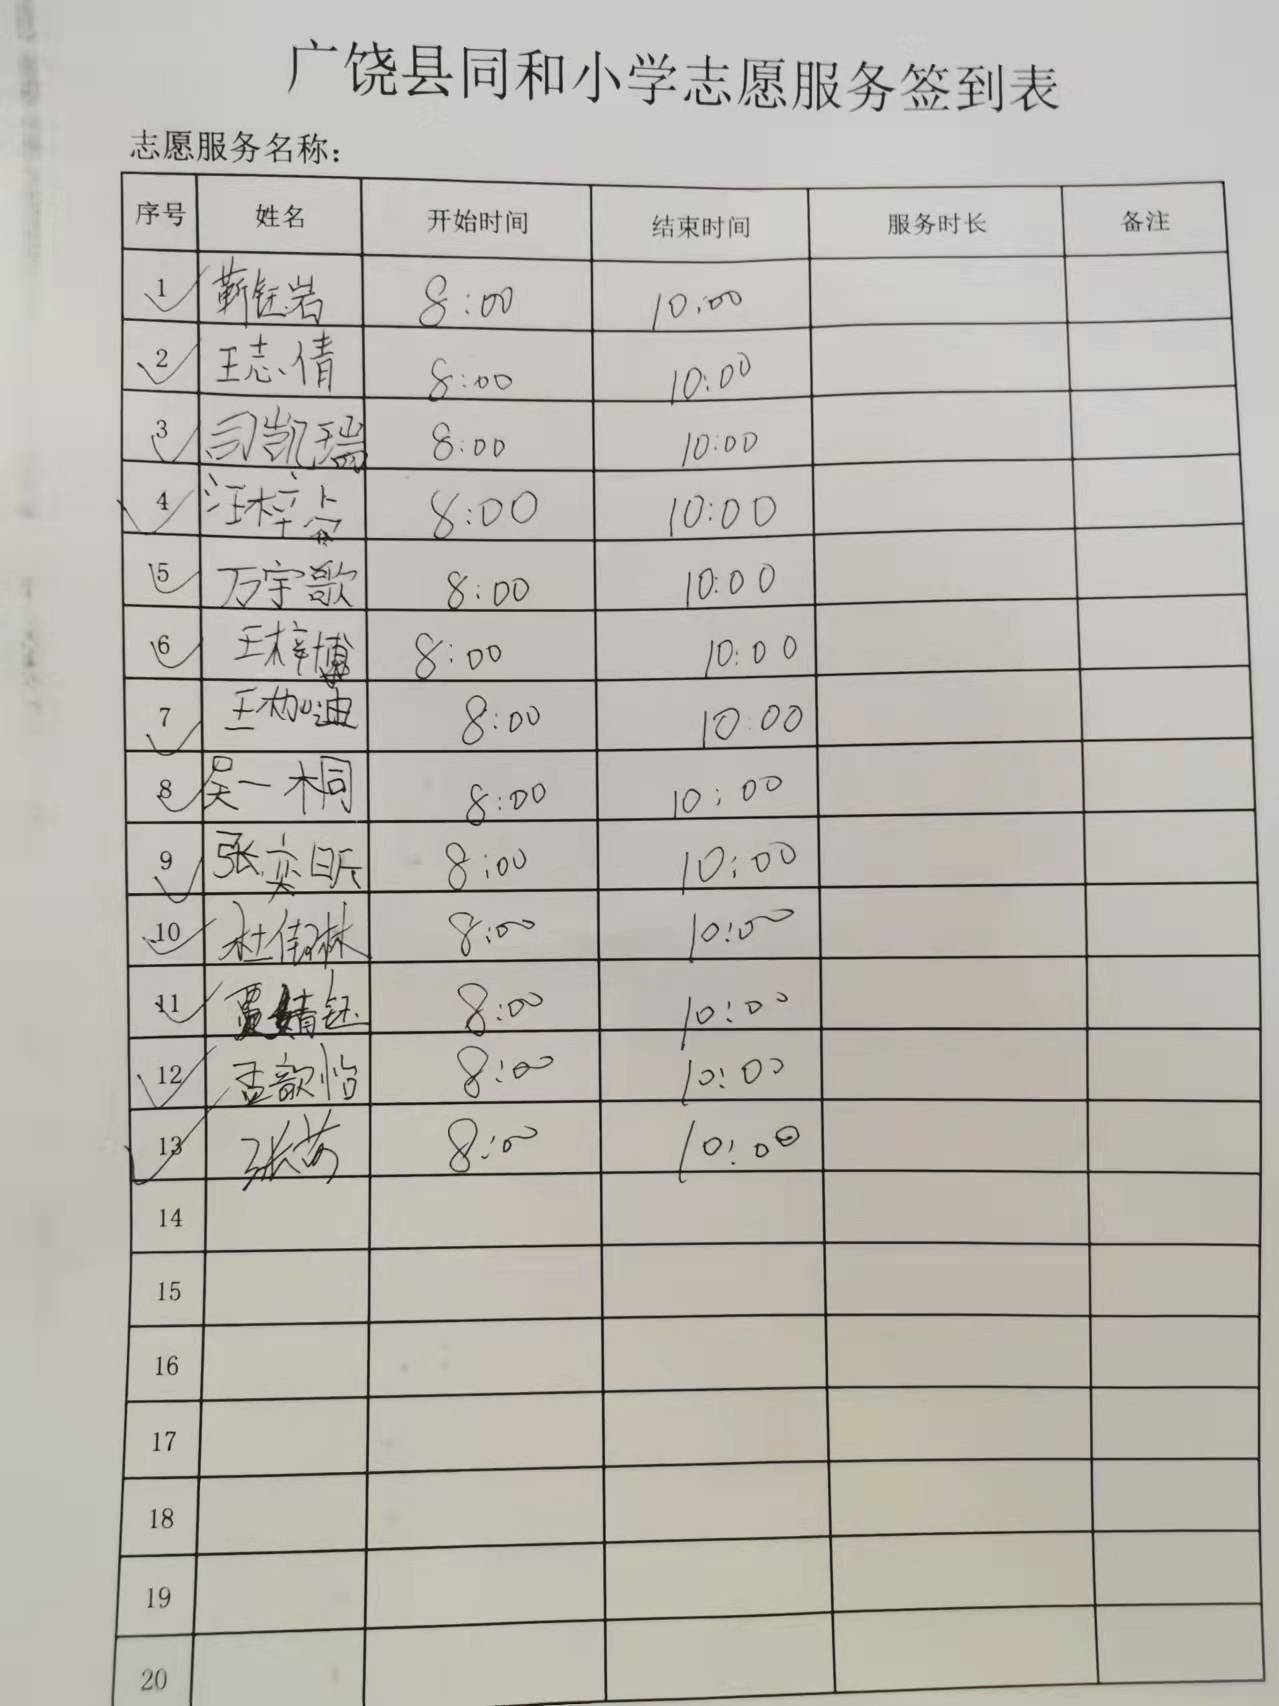 广饶县同和小学志愿服务签到表
志愿服务名称：
序号 姓名 开始时间 结束时间 服务时长 备注
1 靳钰岩 8:00 10:00
2 王志倩 8:00 10:00
3 司凯瑞 8:00 10:00
4 汪梓 8:00 10:00
5 万宇歌 8:00 10:00
6 王梓博 8:00 10:00
7 王枷迪 8:00 10:00
8 吴一桐 8:00 10:00
9 张奕昕 8:00 10:00
10 杜佳琳 8:00 10:00
11 贾婧钰 8:00 10:00
12 孟歆怡 8:00 10:00
13 张 8:00 10:00
14
15
16
17
18
19
20